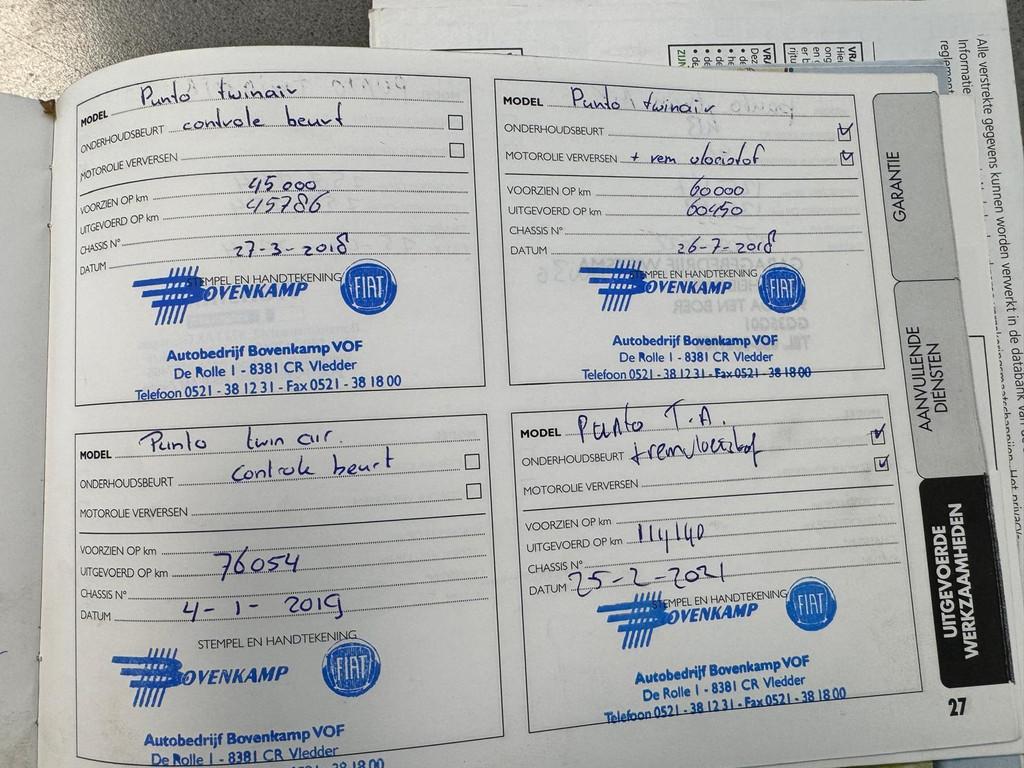 MODEL Punto twinair
ONDERHOUDSBEURT controle beurt
MOTOROLIE VERVERSEN
VOORZIEN OP km 45000
UITGEVOERD OP km 45786
CHASSIS N°
DATUM 27-3-2018
STEMPEL EN HANDTEKENING
BOVENKAMP FIAT
Autobedrijf Bovenkamp VOF
De Rolle 1 - 8381 CR Vledder
Telefoon 0521 - 38 12 31 - Fax 0521 - 38 18 00
MODEL Punto twinair
ONDERHOUDSBEURT
MOTOROLIE VERVERSEN + rem vloeistof
VOORZIEN OP km 60000
UITGEVOERD OP km 60450
CHASSIS N°
DATUM 26-7-2018
STEMPEL EN HANDTEKENING
BOVENKAMP FIAT
Autobedrijf Bovenkamp VOF
De Rolle 1 - 8381 CR Vledder
Telefoon 0521 - 38 12 31 - Fax 0521 - 38 18 00
MODEL Punto twin air.
ONDERHOUDSBEURT controle beurt
MOTOROLIE VERVERSEN
VOORZIEN OP km
UITGEVOERD OP km 76054
CHASSIS N°
DATUM 4-1-2019
STEMPEL EN HANDTEKENING
BOVENKAMP FIAT
Autobedrijf Bovenkamp VOF
De Rolle 1 - 8381 CR Vledder
38 18 00
MODEL Punto T.A.
ONDERHOUDSBEURT + remvloeistof
MOTOROLIE VERVERSEN
VOORZIEN OP km
UITGEVOERD OP km 114140
CHASSIS N°
DATUM 25-2-2021
STEMPEL EN HANDTEKENING
BOVENKAMP FIAT
Autobedrijf Bovenkamp VOF
De Rolle 1 - 8381 CR Vledder
Telefoon 0521 - 38 12 31 - Fax 0521 - 38 18 00
GARANTIE
AANVULLENDE
DIENSTEN
UITGEVOERDE
WERKZAAMHEDEN
27
Alle verstrekte gegevens kunnen worden verwerkt in de databank van
Informatie